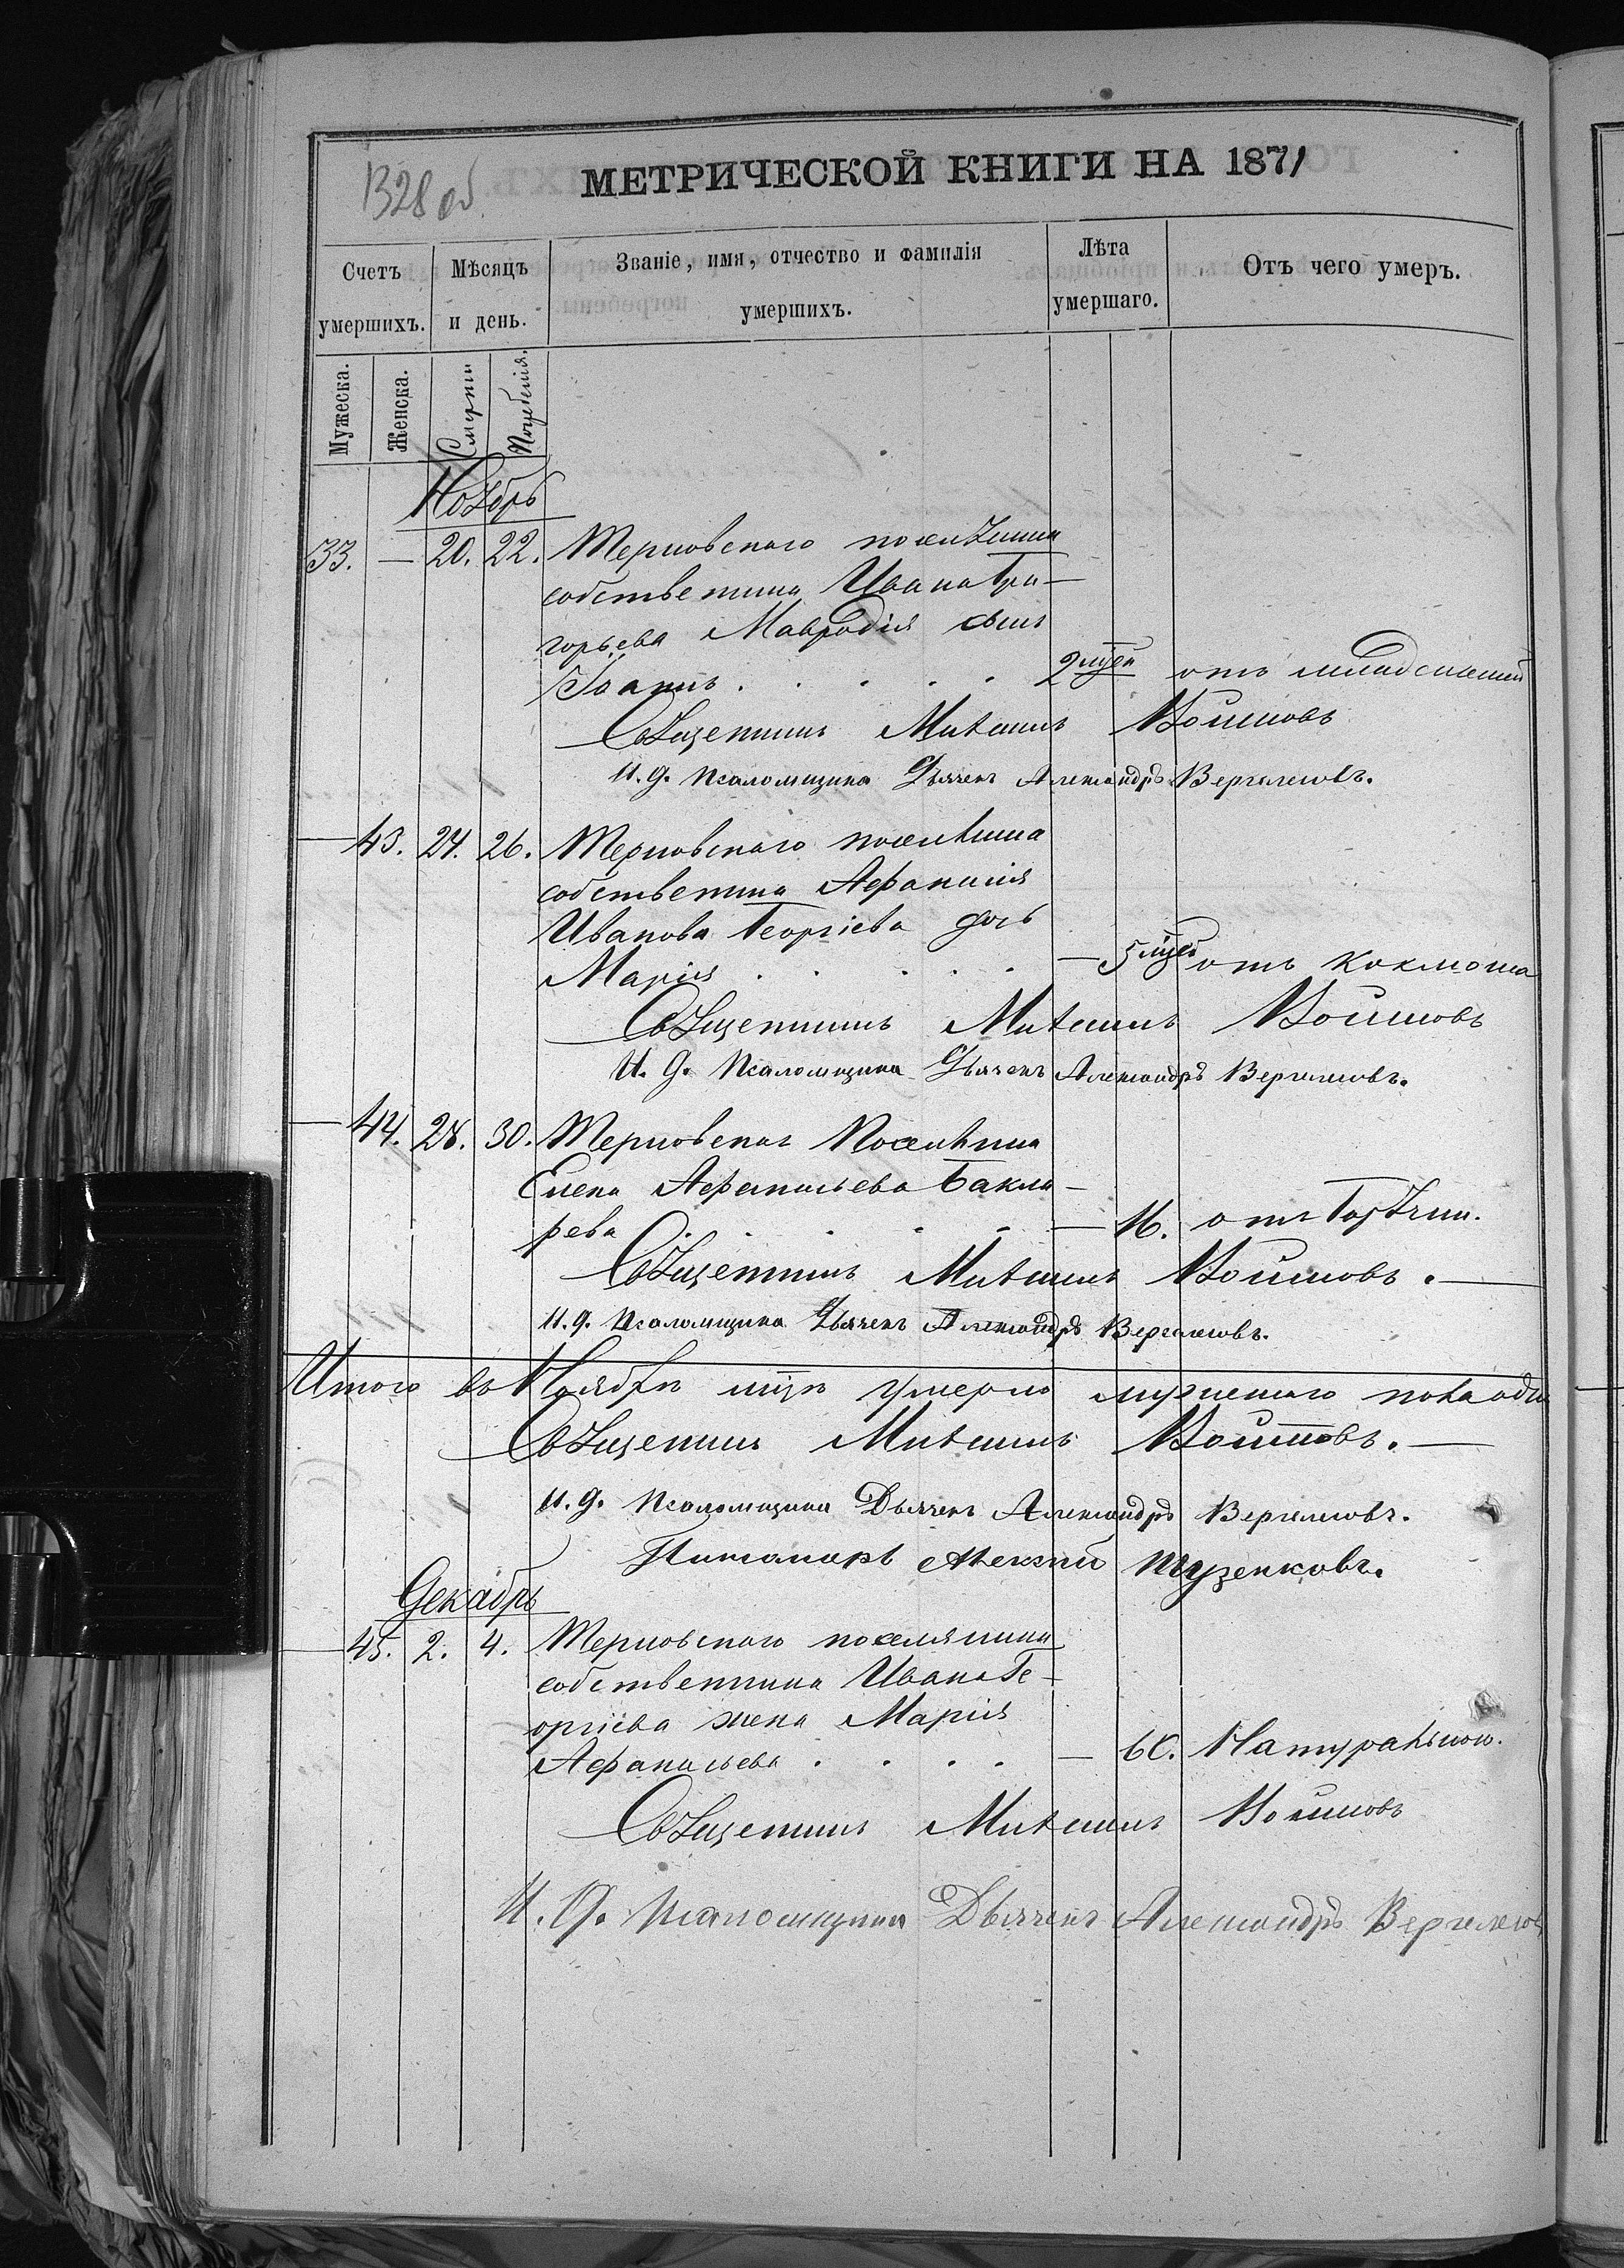 1328 об
МЕТРИЧЕСКОЙ КНИГИ НА 1871
Счетъ умершихъ.
Мѣсяцъ и день.
Званіе, имя, отчество и фамилія умершихъ.
Лѣта умершаго.
Отъ чего умеръ.
Мужеска.
Женска.
Смерти
Погребенія.
Ноябрь
33. — 20. 22. Терновскаго поселянина
собственника Ивана Гри-
горьева Мавродія сынъ
Іоаннъ . . . . . 2 мѣся отъ младенческой
Священникъ Михаилъ Войновъ
И. д. псаломщика Дьячекъ Александръ Вергелесовъ.
— 43. 24. 26. Терновскаго поселянина
собственника Афанасія
Иванова Георгіева дочь
Марія . . . . . — 5 мѣся отъ коклюша
Священникъ Михаилъ Войновъ
И. д. Псаломщика Дьячекъ Александръ Вергелесовъ.
— 44. 28. 30. Терновская Поселянка
Елена Афанасьева Бакла-
рева . . . . . — 16. отъ Горячки.
Священникъ Михаилъ Войновъ. —
И. д. Псаломщика Дьячекъ Александръ Вергелесовъ.
Итого въ Ноябрѣ мцѣ умерло мужескаго пола оди
Священникъ Михаилъ Войновъ. —
И. д. Псаломщика Дьячекъ Александръ Вергелесовъ.
Титаларь Алексій
Декабрь
— 45. 2. 4. Терновскаго поселянина
собственника Ивана Ге-
оргіева жена Марія
Афанасьева . . . . — 60. Натуральною.
Священникъ Михаилъ Войновъ
И. Д. Псаломщика Дьячекъ Александръ Вергелесов